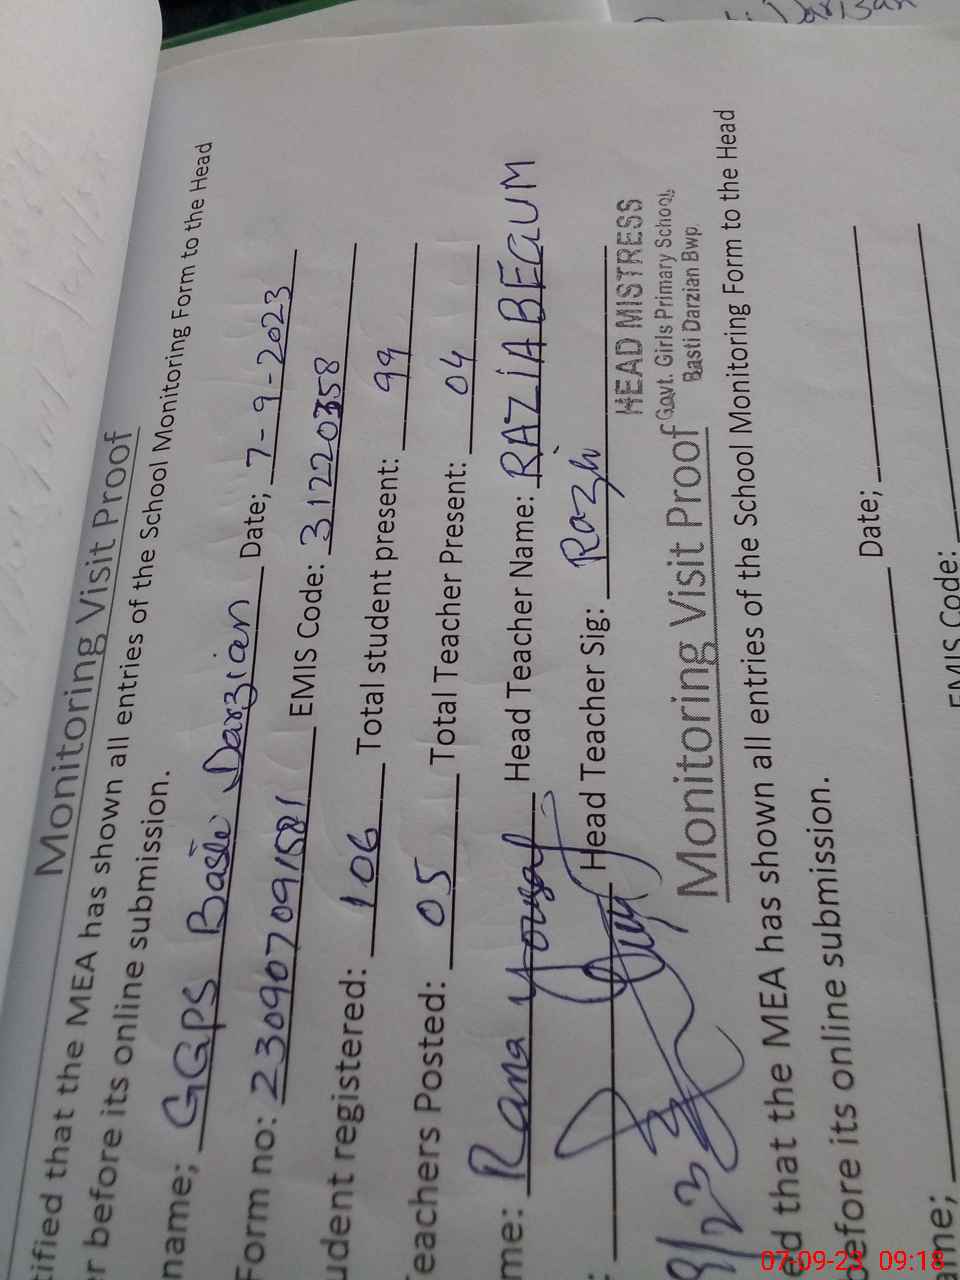 Darzian
Monitoring Visit Proof
tified that the MEA has shown all entries of the School Monitoring Form to the Head
r before its online submission.
name; GGPS Basti Darzian Date; 7-9-2023
Form no: 230907091581 EMIS Code: 31220358
udent registered: 106 Total student present: 99
eachers Posted: 05 Total Teacher Present: 04
me: Rana Yousaf Head Teacher Name: RAZIA BEGUM
: Head Teacher Sig: Razh
HEAD MISTRESS
Govt. Girls Primary School,
Basti Darzian Bwp
9/23
Monitoring Visit Proof
ed that the MEA has shown all entries of the School Monitoring Form to the Head
before its online submission.
ame; Date;
EMIS Code:
07-09-23 09:18